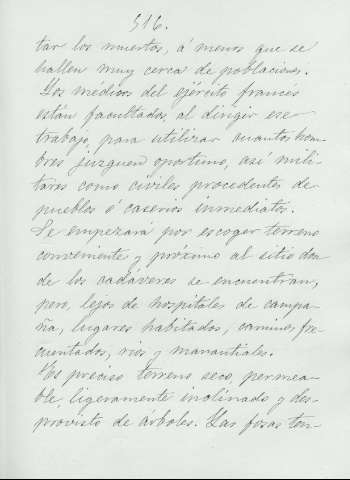 516.
tar los muertos, á menos que se
hallen muy cerca de poblaciones.
Los médicos del ejército francés
están facultados, al dirigir ese
trabajo, para utilizar cuantos hom-
bres juzguen oportuno, así mili-
tares como civiles procedentes de
pueblos ó caserios inmediatos.
Se empezará por escoger terreno
conveniente y próximo al sitio don-
de los cadáveres se encuentran,
pero, lejos de hospitales de campa-
ña, lugares habitados, caminos fre-
cuentados, rios y manantiales.
Es preciso terreno seco, permea-
ble, ligeramente inclinado y des-
provisto de árboles. Las fosas ten-